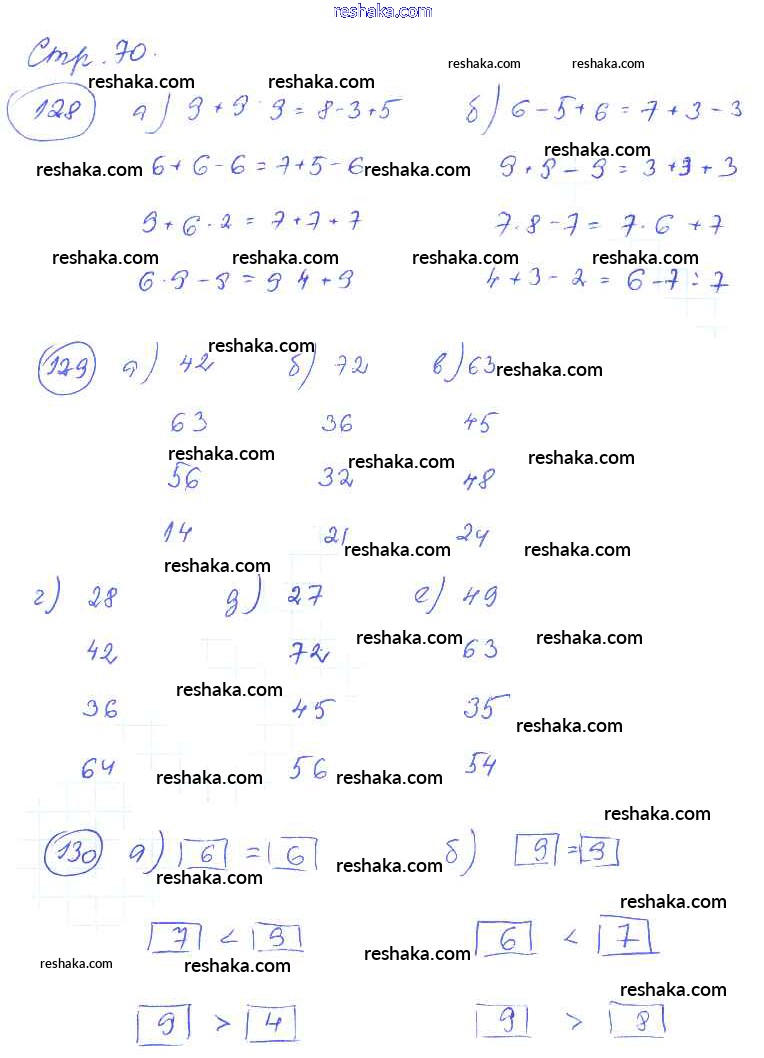 reshaka.com
Стр. 70.
reshaka.com reshaka.com reshaka.com reshaka.com
128 а) 9 + 9 · 9 = 8 - 3 + 5 б) 6 - 5 + 6 = 7 + 3 - 3
reshaka.com
reshaka.com 6 + 6 - 6 = 7 + 5 - 6 reshaka.com 9 + 9 - 9 = 3 + 3 + 3
9 + 6 · 2 = 7 + 7 + 7 7 · 8 - 7 = 7 · 6 + 7
reshaka.com reshaka.com reshaka.com reshaka.com
6 · 9 - 9 = 9 4 + 9 4 + 3 - 2 = 6 - 7 : 7
reshaka.com
129 а) 42 б) 72 в) 63 reshaka.com
63 36 45
reshaka.com reshaka.com reshaka.com
56 32 48
14 21 24
reshaka.com reshaka.com
reshaka.com
г) 28 д) 27 е) 49
reshaka.com reshaka.com
42 72 63
reshaka.com
36 45 35
reshaka.com
64 reshaka.com 56 reshaka.com 54
reshaka.com
130 а) 6 = 6 б) 9 = 9
reshaka.com reshaka.com
reshaka.com
7 < 9 6 < 7
reshaka.com reshaka.com reshaka.com
reshaka.com
9 > 4 9 > 8